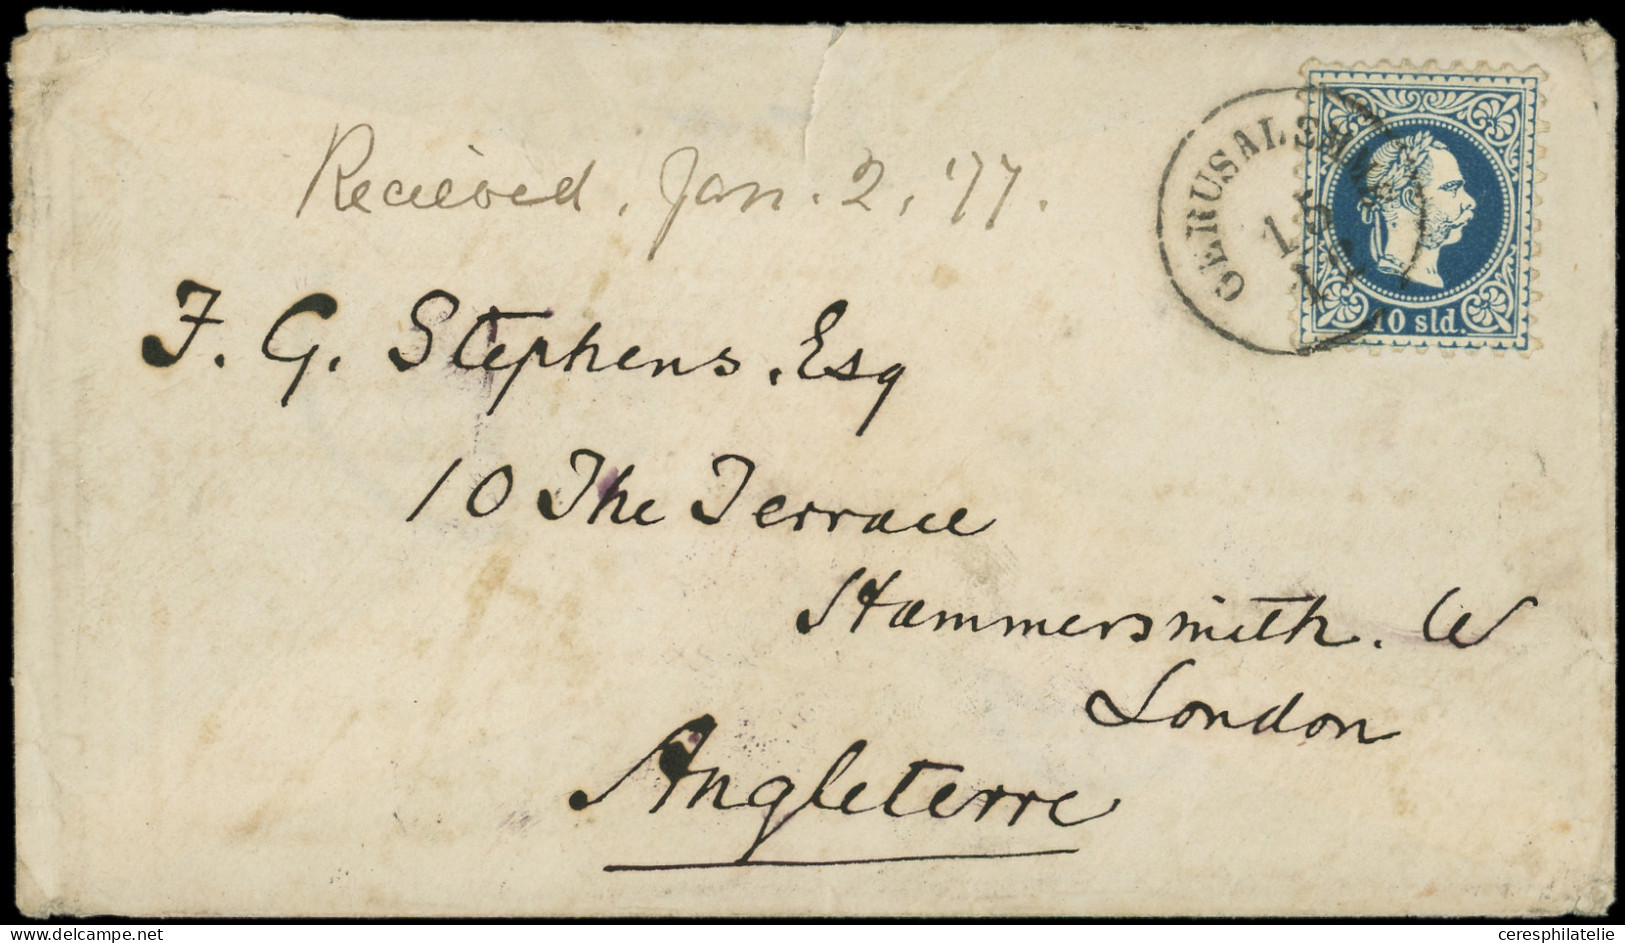 Recieved, Jan. 2, '77.
GERUSALEMME
15
10 sld.
F. G. Stephens, Esq
10 The Terrace
Hammersmith. W
London
Angleterre
delcampe.net
ceresphilatelie